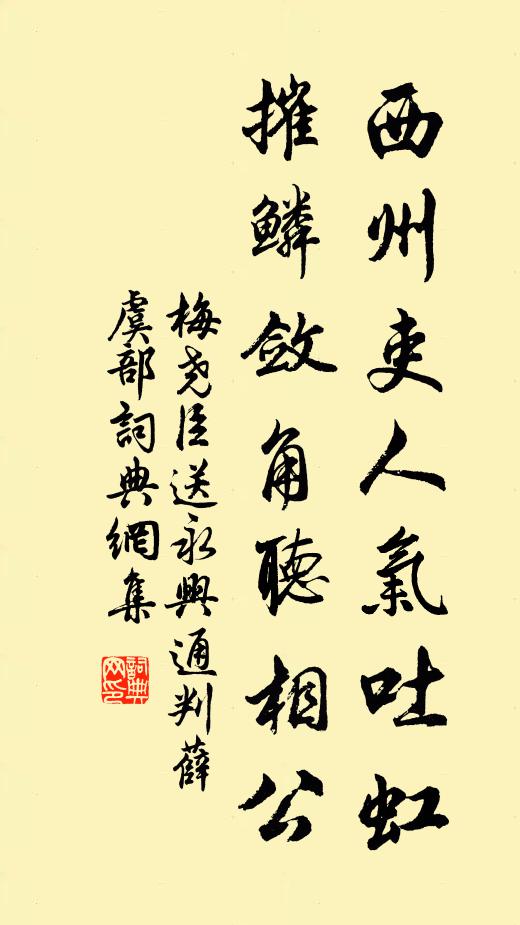 西州吏人氣吐虹
摧鱗斂角聽相公
梅堯臣送永興通判薛
虞部詞典網集
詞典網印